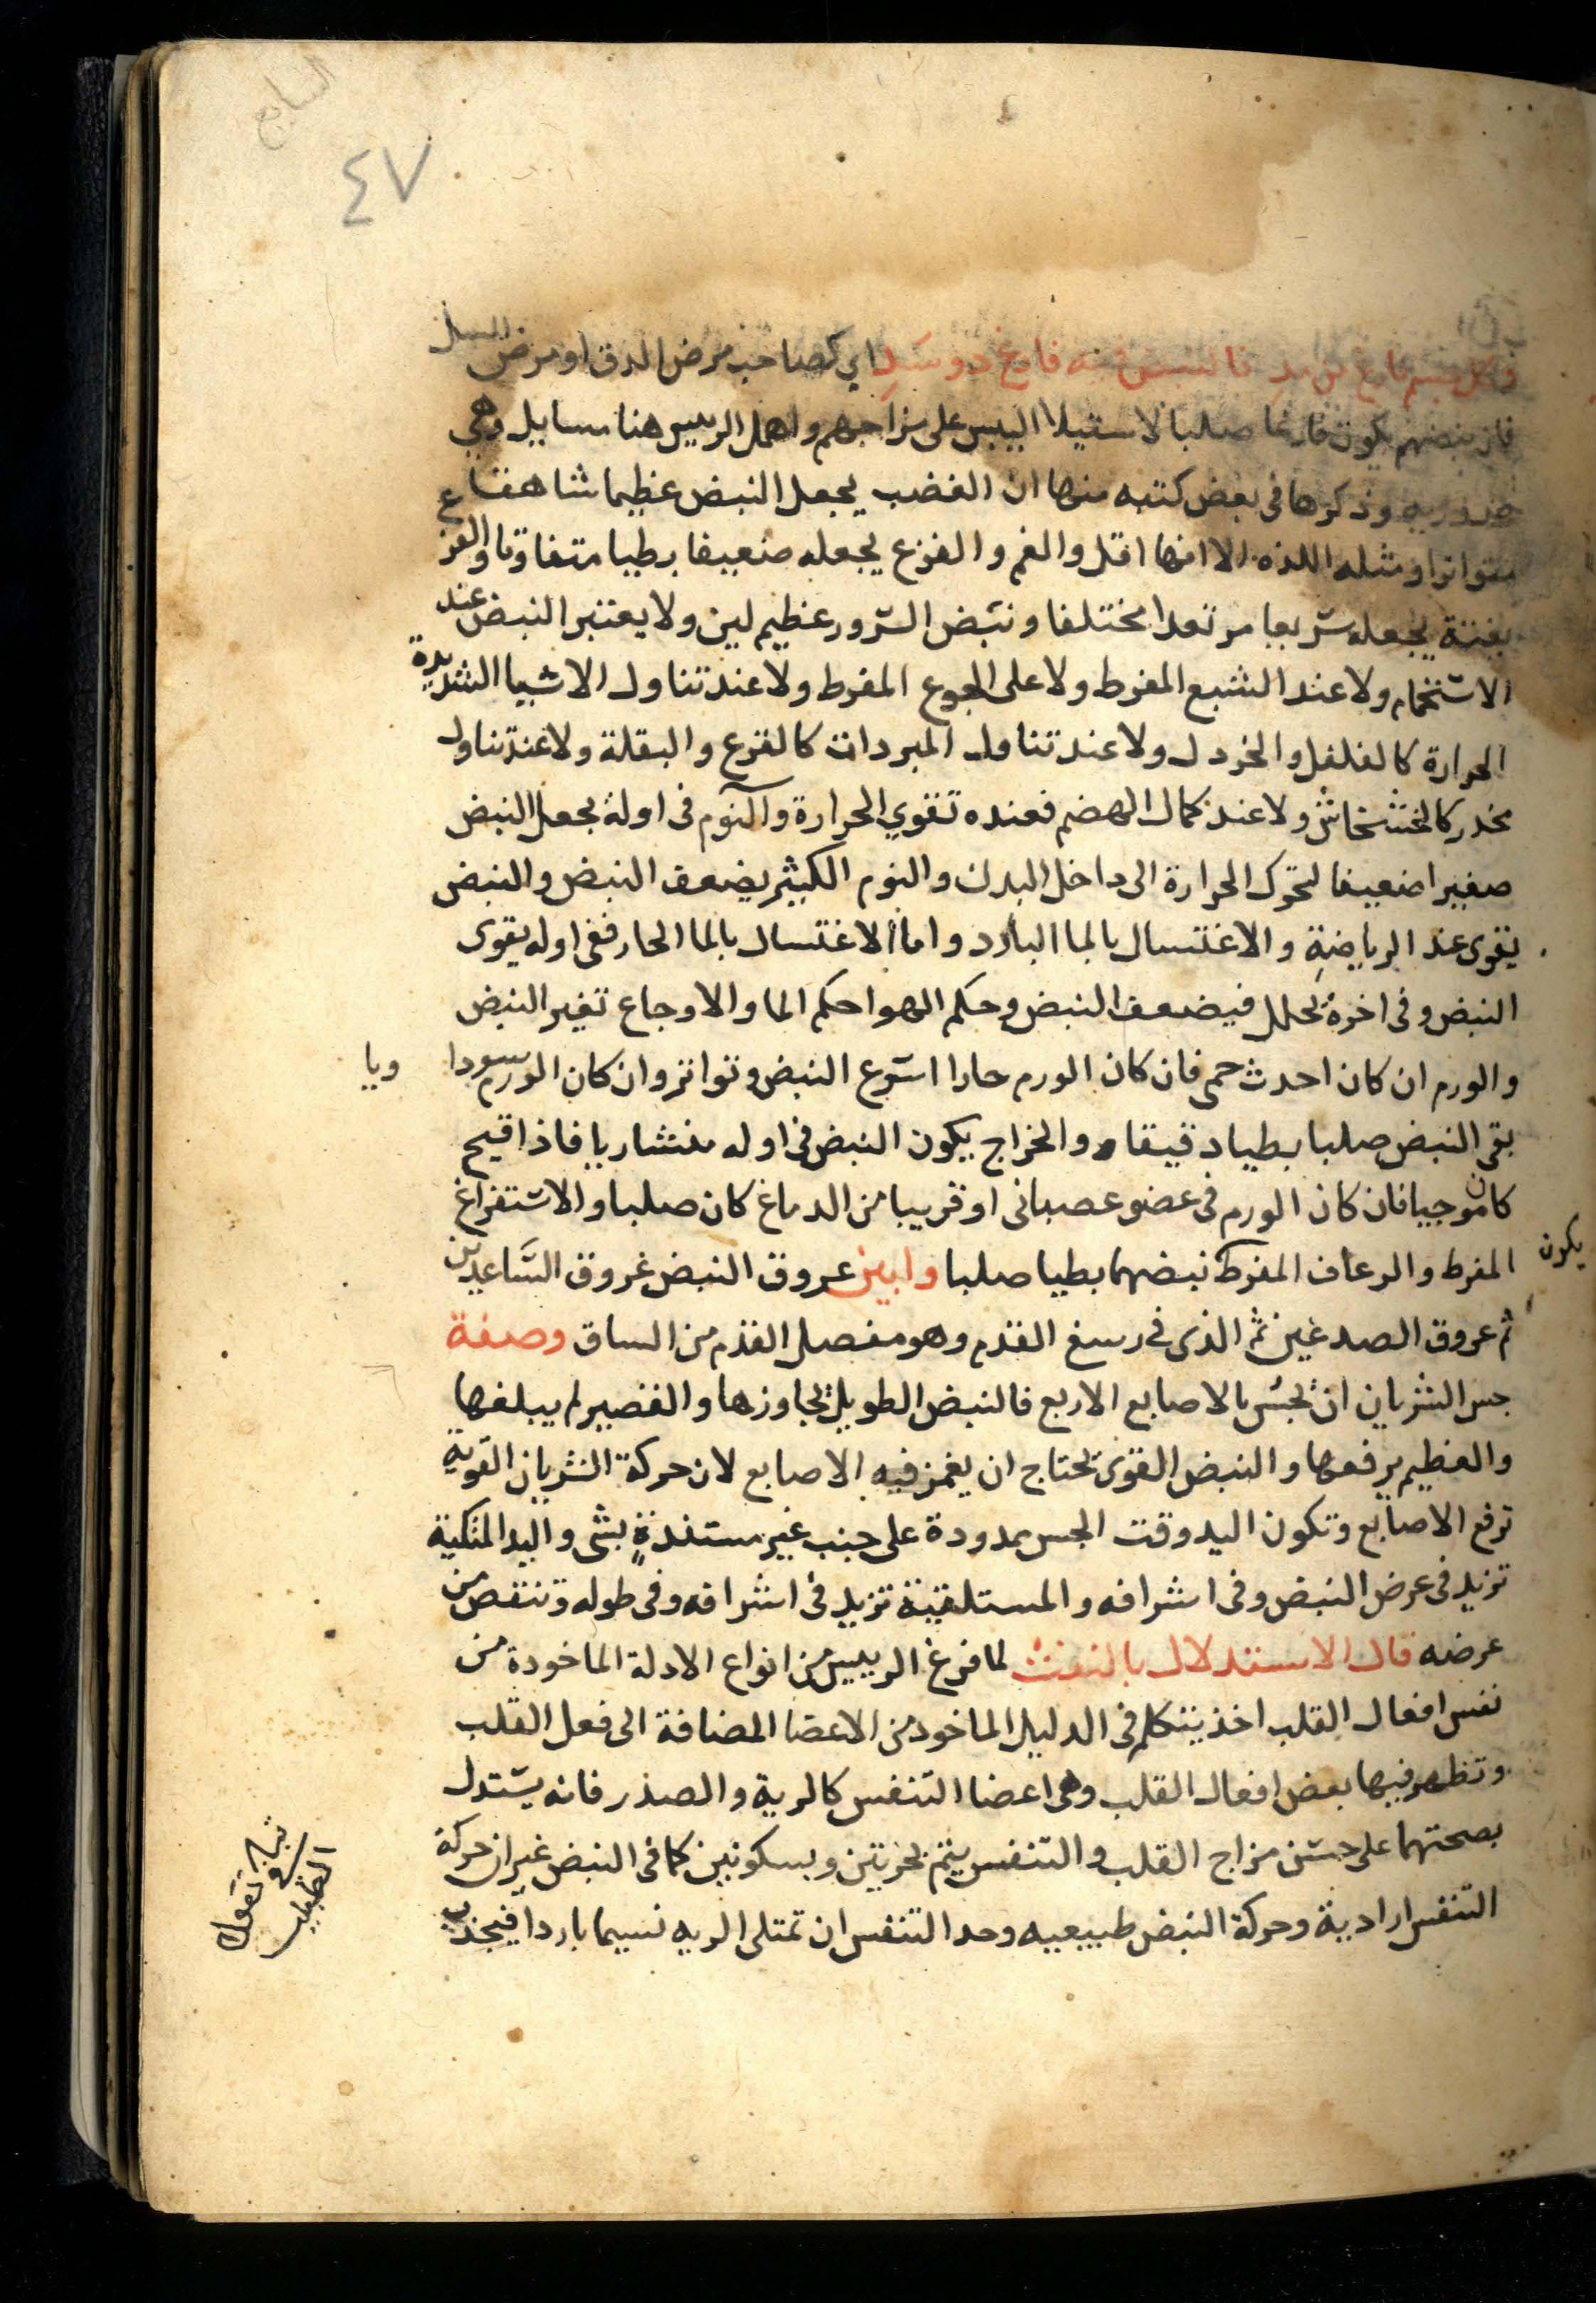 السابع
٤٧
وكل جسم فارغ من فالنبض فيه فارغ ذو سد اي كصاحب مرض الدق او مرض السل
فان نبضهم يكون فارغا صلبا لاستيلا اليبس على مزاجهم واهمل الرييس هنا مسايل وهي
ضروريه وذكرها في بعض كتبه منها ان الغضب يجعل النبض عظيما شاهقا
متواترا ومثله اللذه الا انها اقل والغم والفزع يجعله ضعيفا بطيا متفاوتا والفزع
بغتة يجعله سريعا مرتعدا مختلفا ونبض السرور عظيم لين ولا يعتبر النبض عند
الاستحمام ولا عند الشبع المفرط ولا على الجوع المفرط ولا عند تناول الاشيا الشديدة
الحرارة كالفلفل والخردل ولا عند تناول المبردات كالقرع والبقلة ولا عند تناول
مخدر كالخشخاش ولا عند كمال الهضم فعنده تقوي الحرارة والنوم في اولة يجعل النبض
صغيرا ضعيفا لتحرك الحرارة الى داخل البدن والنوم الكثير يضعف النبض والنبض
يقوى عند الرياضة والاغتسال بالما البارد واما الاغتسال بالما الحار ففي اوله يقوى
النبض وفي اخرة يحلل فيضعف النبض وحكم الهوا حكم الما والاوجاع تغير النبض
والورم ان كان احدث حمى فان كان الورم حارا اسرع النبض وتواتر وان كان الورم سودا ويا
بقى النبض صلبا بطيا دقيقا والخراج يكون النبض في اوله منشاريا فاذا قيح
كان موجيا فان كان الورم في عضو عصباني او قريبا من الدماغ كان صلبا والاستفراغ
المفرط والرعاف المفرط يكون نبضهما بطيا صلبا وابين عروق النبض عروق الساعدين
ثم عروق الصدغين ثم الذي في رسغ القدم وهو مفصل القدم من الساق وصفة
جس الشريان ان تجس بالاصابع الاربع فالنبض الطويل يجاوزها والقصير لم يبلغها
والعظيم يرفعها والنبض القوى يحتاج ان يغمز فيه الاصابع لان حركة الشريان القوية
ترفع الاصابع وتكون اليد وقت الجس ممدودة على جنب غير مستندة بشى واليد المتكية
تزيد في عرض النبض وفي اشرافه والمستلقية تزيد في اشرافه وفي طوله وتنقص من
عرضه قال الاستدلال بالنفث لما فرغ الرييس من انواع الادلة الماخودة من
نفس افعال القلب اخذ يتكلم في الدليل الماخود من الاعضا المضافة الى فعل القلب
وتظهر فيها بعض افعال القلب وهى اعضا التنفس كالرية والصدر فانه يستدل
بصحتهما على حسن مزاج القلب والتنفس يتم بحركتين وبسكونين كما في النبض غير ان حركة
التنفس ارادية وحركة النبض طبيعيه وحد التنفس ان تمتلى الريه نسيما باردا فيجذب